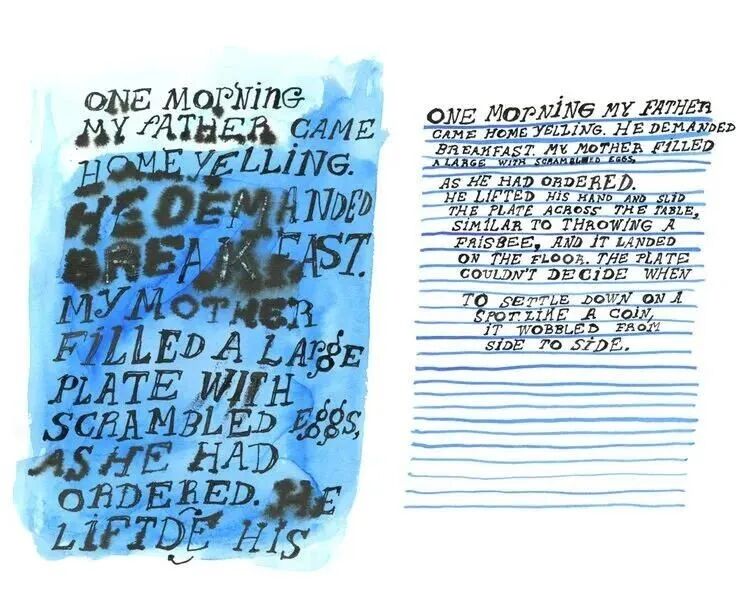 ONE MORNING
MY FATHER CAME
HOME YELLING.
HE DEMANDED
BREAKFAST.
MY MOTHER
FILLED A LARGE
PLATE WITH
SCRAMBLED EGGS,
AS HE HAD
ORDERED. HE
LIFTDE HIS
ONE MORNING MY FATHER
CAME HOME YELLING. HE DEMANDED
BREAKFAST. MY MOTHER FILLED
A LARGE WITH SCRAMBLED EGGS,
AS HE HAD ORDERED.
HE LIFTED HIS HAND AND SLID
THE PLATE ACROSS THE TABLE,
SIMILAR TO THROWING A
FRISBEE, AND IT LANDED
ON THE FLOOR. THE PLATE
COULDN'T DECIDE WHEN
TO SETTLE DOWN ON A
SPOT. LIKE A COIN,
IT WOBBLED FROM
SIDE TO SIDE.